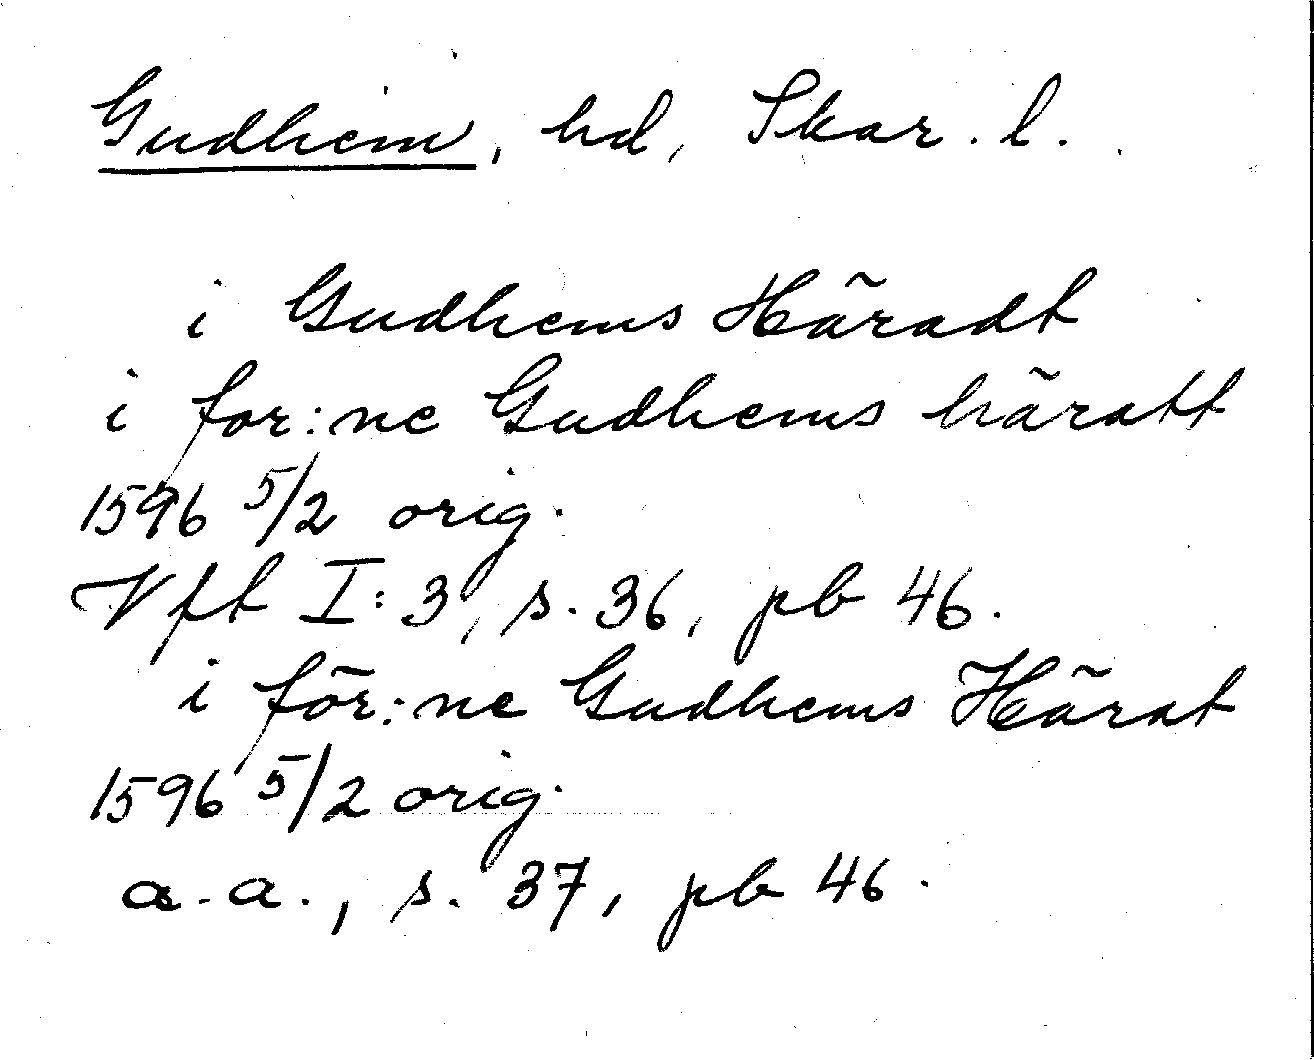 Gudhem, hd, Skar. l.
i Gudhems Häradt
i for:ne Gudhems häratt
1596 5/2 orig.
Vft I:3, s. 36, pb 46.
i för:ne Gudhems Härat
1596 5/2 orig.
a.a., s. 37, pb 46.